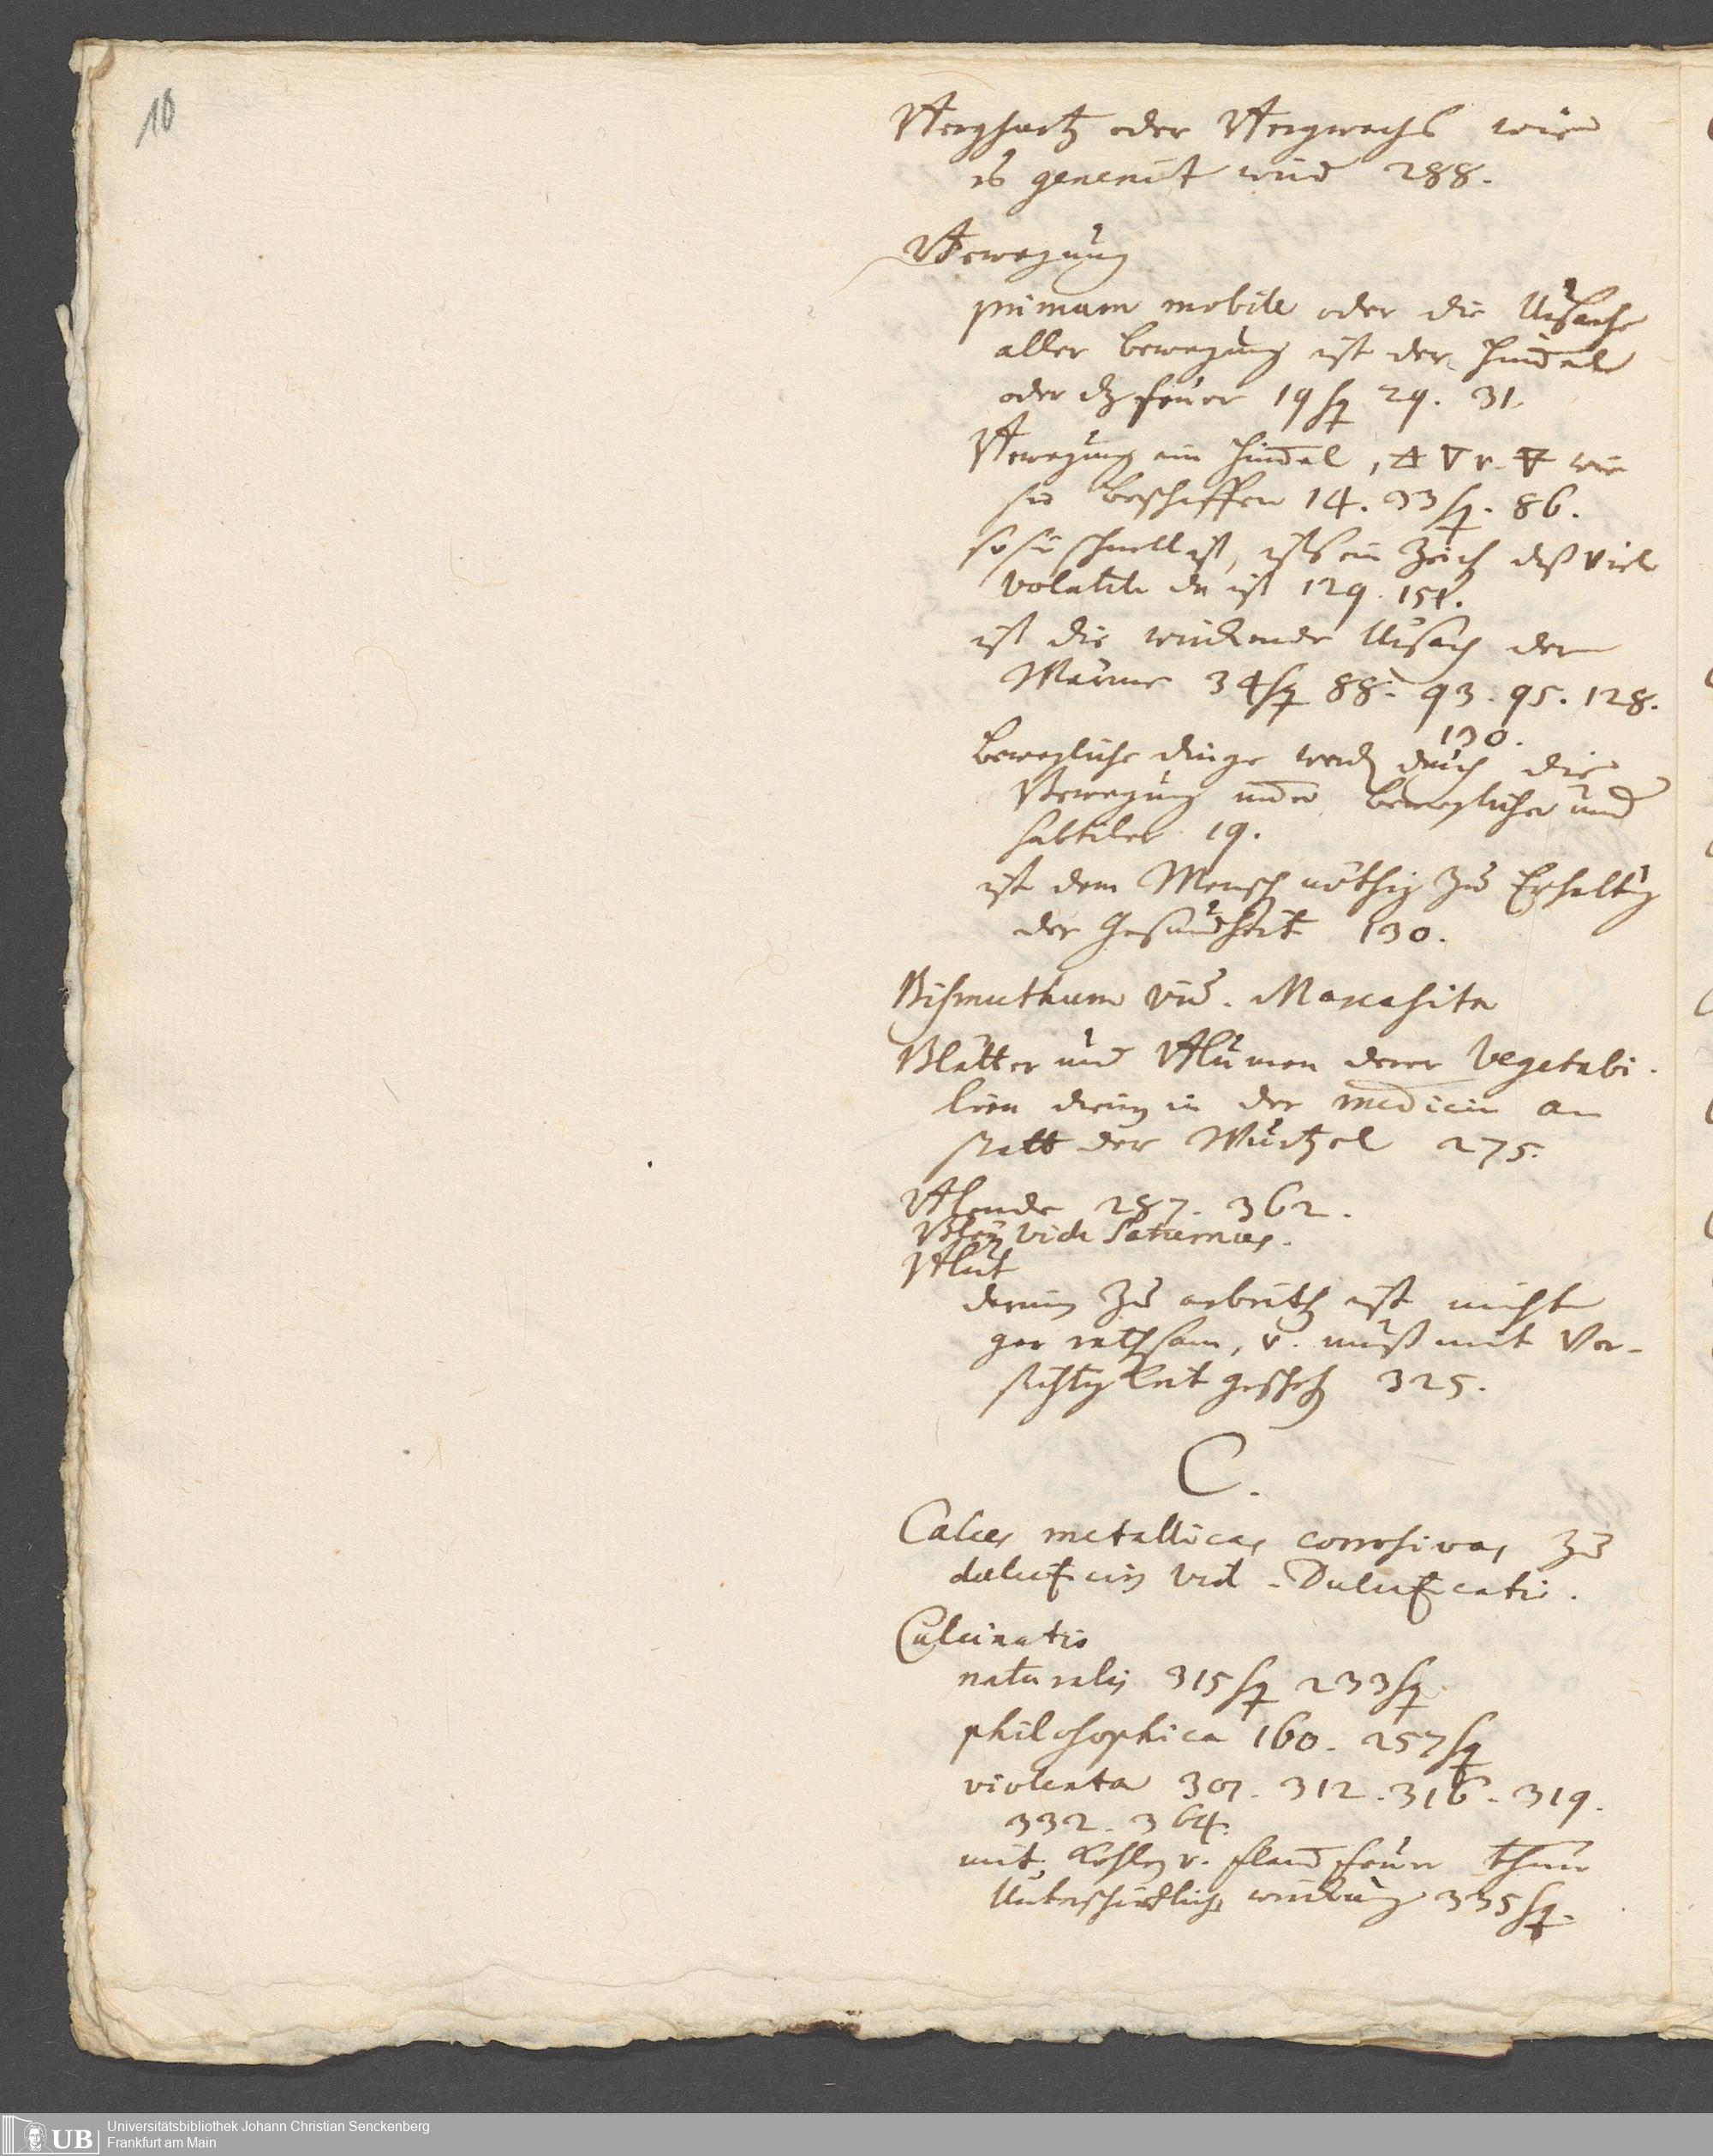 10
Berghartz oder Bergwachs wie
es genennt wird 288.
Bewegung
primum mobile oder die Ursache
aller bewegung ist der Himel
oder dz feuer 19 sq 29. 31.
Bewegung im Himel, 🜁 🜄 v. 🜃 wie
sie beschaffen 14. 33 sq. 86.
so sie schnell ist, ists ein Zeich daß viel
volatile da ist 129. 151.
ist die wirckende Ursach der
Wärme 34 sq 88. 93. 95. 128.
130.
bewegliche dinge werdē durch die
Bewegung beweglicher und
subtiler 19.
ist dem Mensch nöthig zu Erhaltg
der Gesundheit 130.
Bismuthum vid. Marcasita
Blätter und Blumen derer Vegetabi-
lien in der medicin an
statt der Wurtzel 275.
Blende 287. 362.
Bley vide Saturnus.
Blut
darin zu arbeitē ist nicht
gar rathsam, v. muß mit Vor-
sichtigkeit gescheh 325.
C.
Calces metallicas corrosivas zu
dulcificirn vid. Dulcificatio.
Calcinatio
naturalis 315 sq 233 sq
philosophica 160. 257 sq
violenta 307. 312. 316. 319.
332. 364.
mit Kohlen v. flamfeuer thun
Unterschiedliche wirckung 335 sq.
UB Universitätsbibliothek Johann Christian Senckenberg
Frankfurt am Main